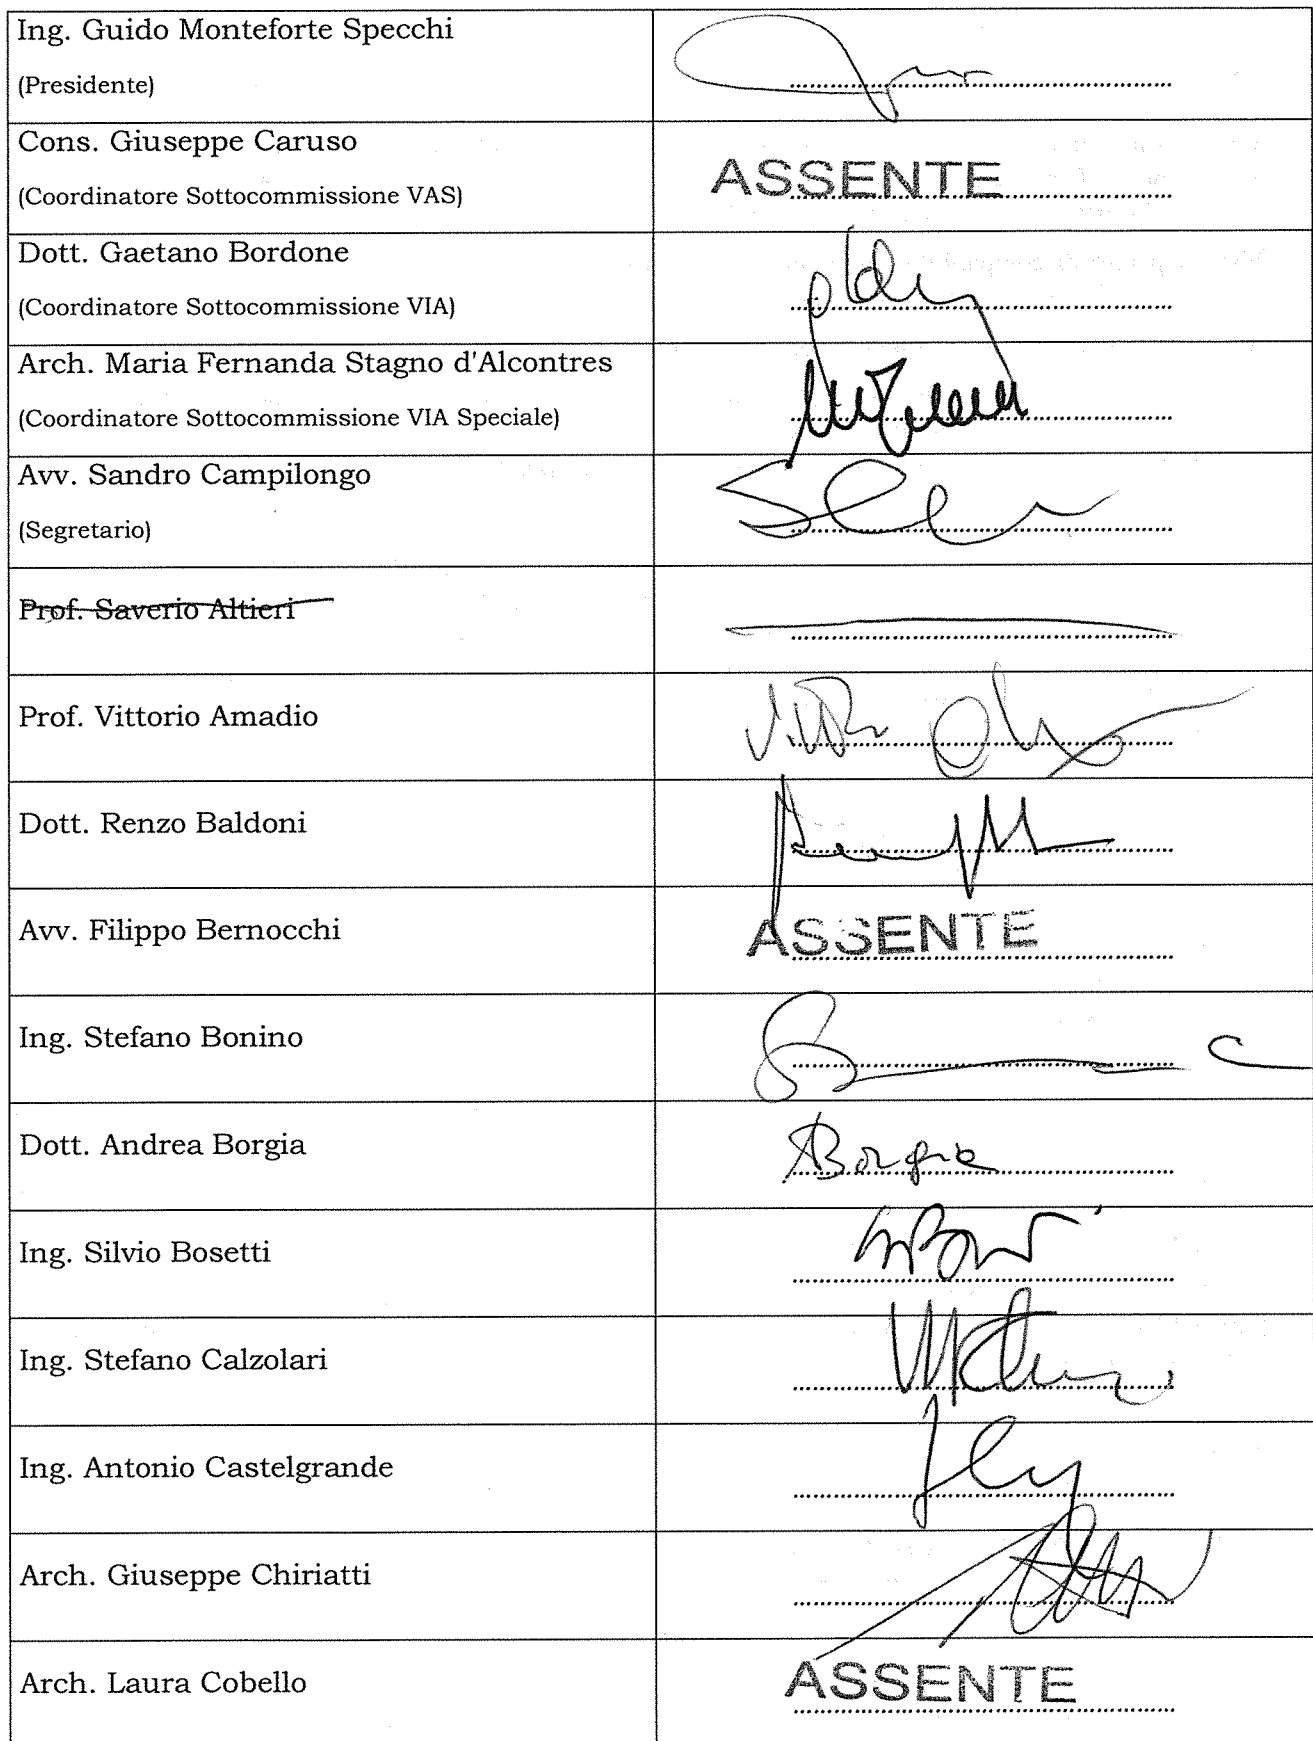 Ing. Guido Monteforte Specchi
(Presidente)
Cons. Giuseppe Caruso
(Coordinatore Sottocommissione VAS)
ASSENTE
Dott. Gaetano Bordone
(Coordinatore Sottocommissione VIA)
Arch. Maria Fernanda Stagno d'Alcontres
(Coordinatore Sottocommissione VIA Speciale)
Avv. Sandro Campilongo
(Segretario)
Prof. Saverio Altieri
Prof. Vittorio Amadio
Dott. Renzo Baldoni
Avv. Filippo Bernocchi
ASSENTE
Ing. Stefano Bonino
Dott. Andrea Borgia
ABorgia
Ing. Silvio Bosetti
Ing. Stefano Calzolari
Ing. Antonio Castelgrande
Arch. Giuseppe Chiriatti
Arch. Laura Cobello
ASSENTE